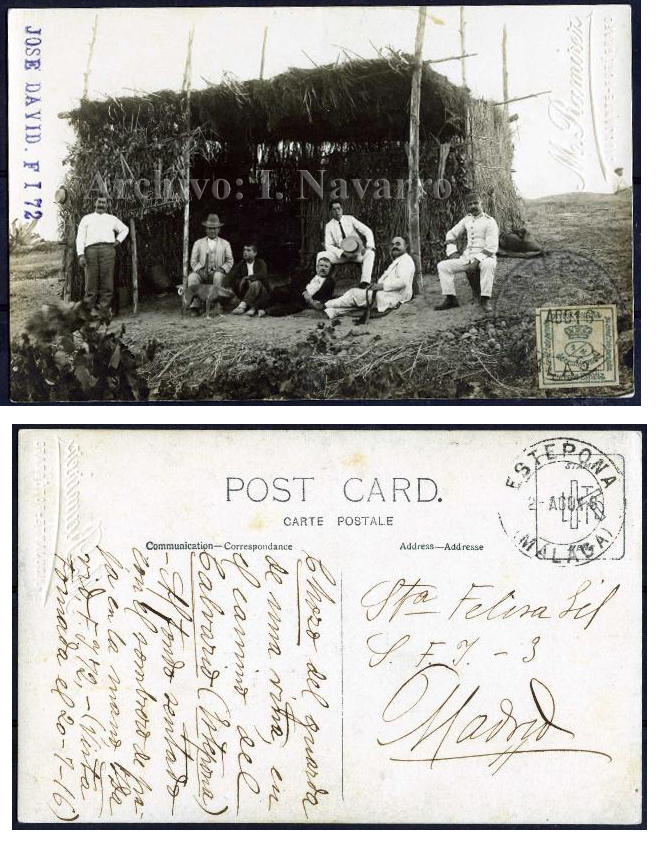 JOSE DAVID. F 172
M. Ramirez
Archivo: I. Navarro
AGO16
1/4
POST CARD.
CARTE POSTALE
Communication—Correspondance
Address—Adresse
ESTEPONA
2-AGO16
(MALAGA)
Chozo del guarda
de una viña, en
el camino del
Calvario (Estepona)
- Alfredo sentado
con el sombrero de pa-
ja en la mano
(Vista
tomada el 20-7-16)
Sta Felisa Gil
S. F. J. - 3
Madrid